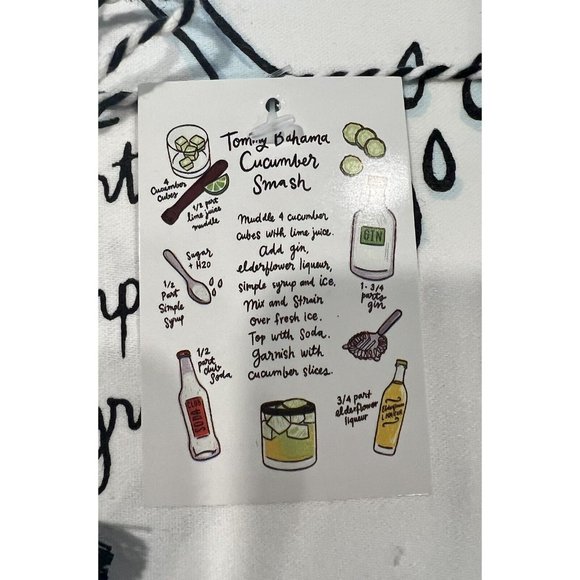 Tommy Bahama
Cucumber
Smash
4
Cucumber
Cubes
1/2 part
lime juice
muddle
Muddle 4 cucumber
cubes with lime juice.
Add gin,
elderflower liqueur,
simple syrup and ice.
Mix and Strain
over fresh ice.
Top with Soda.
Garnish with
cucumber slices.
GIN
1-3/4
parts
gin
Sugar
+ H2O
1/2
Part
Simple
Syrup
1/2
part
club
Soda
CLUB
SODA
3/4 part
elderflower
liqueur
Elderflower
LIQUEUR